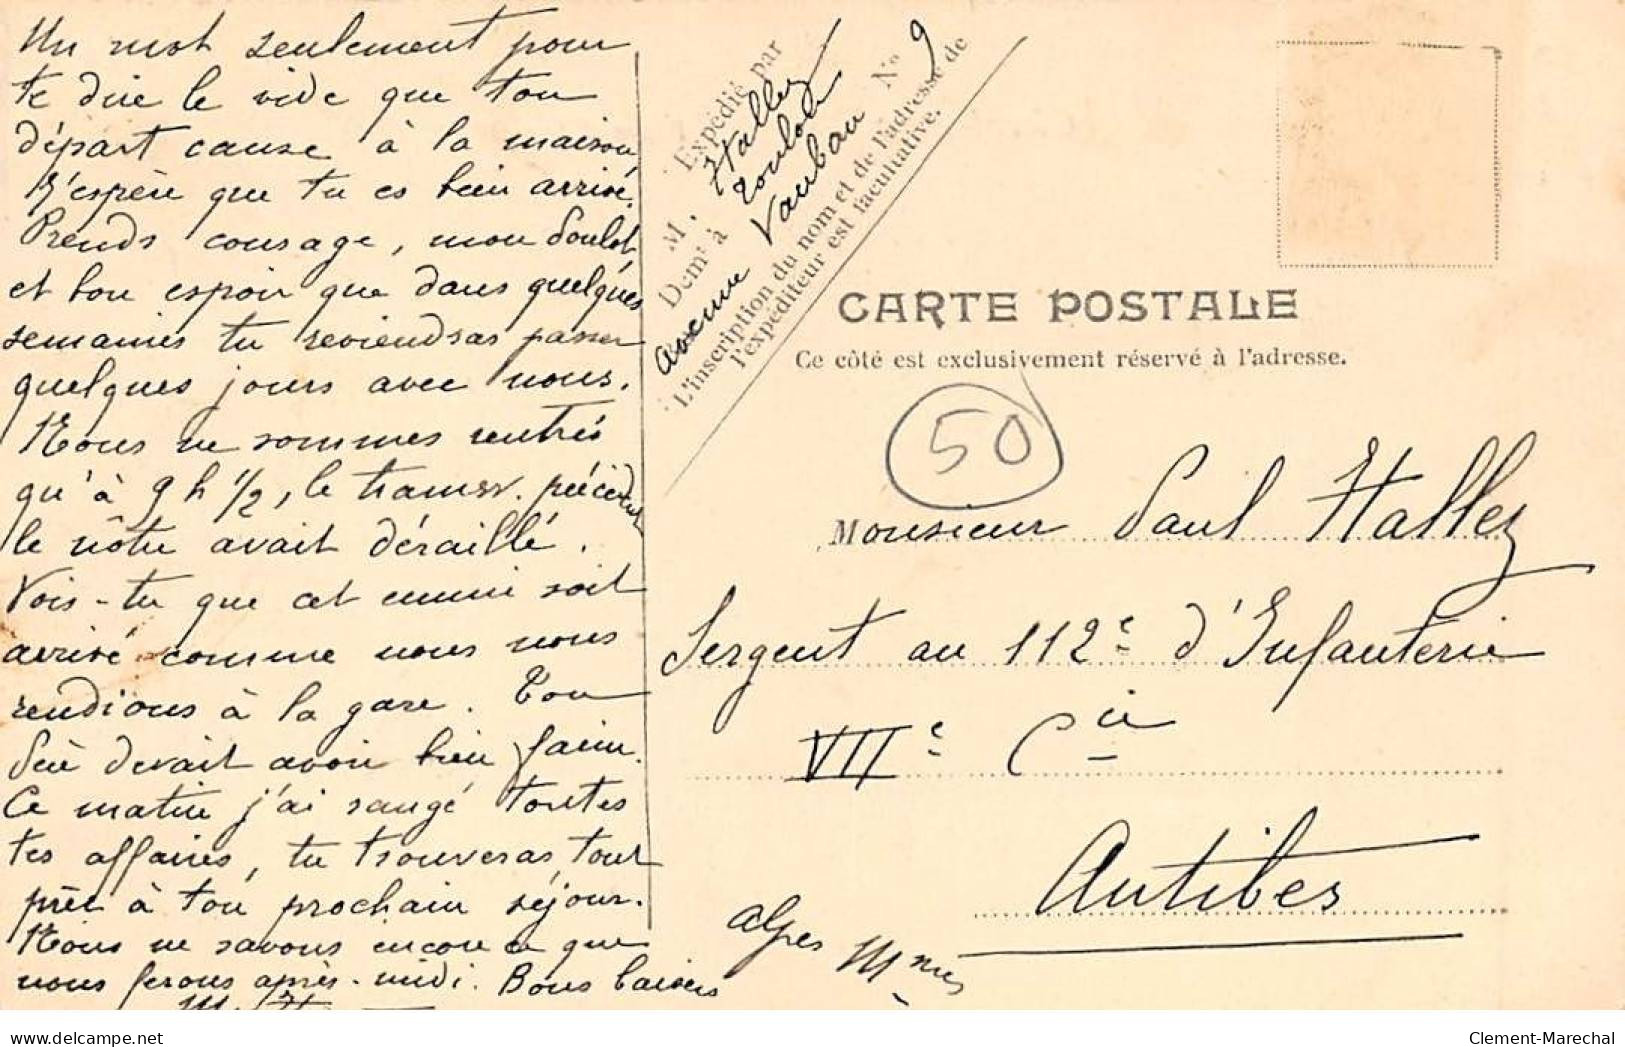 Un mot seulement pour
te dire le vide que ton
départ cause à la maison
J'espère que tu es bien arrivé.
Prends courage, mon Poulot
et bon espoir que dans quelques
semaines tu reviendras passer
quelques jours avec nous.
Nous ne sommes rentrés
qu'à 9 h 1/2, le tramw. précédent
le nôtre avait déraillé.
Vois-tu que cet ennui soit
arrivé comme nous nous
rendions à la gare. Ton
Père devait avoir bien faim.
Ce matin j'ai rangé toutes
tes affaires, tu trouveras tout
prêt à ton prochain séjour.
Nous ne savons encore ce que
nous ferons après-midi. Bons baisers
M. H.
Expédié par
M. Hallez
Demt à Toulon
avenue Vauban No 9
L'inscription du nom et de l'adresse de
l'expéditeur est facultative.
CARTE POSTALE
Ce côté est exclusivement réservé à l'adresse.
50
Monsieur Paul Hallez
Sergent au 112e d'Infanterie
VIIe Cie
Antibes
Alpes Mmes
delcampe.net
Clement-Marechal